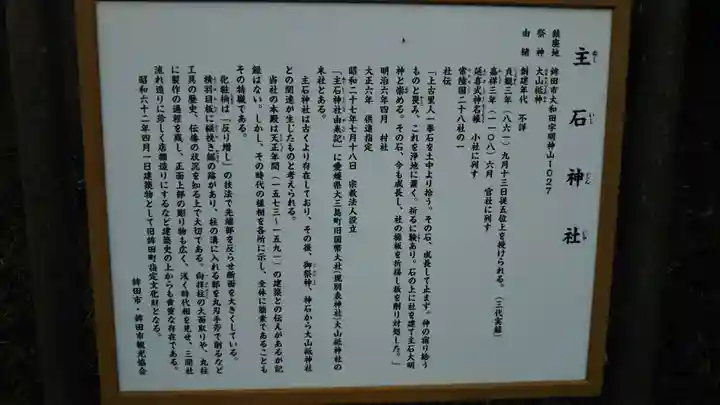 主石神社
ぬし いし じん じゃ
鎮座地 鉾田市大和田字明神山1027
祭神 大山祇神
由緒 創建年代 不詳
貞観三年(八六一)九月十三日従五位上を授けられる。(三代実録)
嘉祥三年(一一〇八)六月 官社に列す
延喜式神名帳 小社に列す
常陸国二十八社の一
社伝
「上古里人一拳石を土中より拾う。その石、成長して止まず。神の宿り給う
ものと畏み、これを浄地に置く。祈るに験あり。石の上に社を建て主石大明
神と崇める。その石、今も成長し、社の梯板を祈禱し板を削り対処した。」
明治六年四月 村社
大正六年 供進指定
昭和二十七年七月十八日 宗教法人設立
「主石神社由来記」に愛媛県大三島町旧国幣大社(現別表神社)大山祇神社の
末社とある。
主石神社は古くより存在しており、その後、御祭神、神石から大山祇神社
との関連が生じたものと考えられる。
当社の本殿は天正年間(一五七三〜一五九一)の建築との伝えがあるが記
録はない。しかし、その時代の様相を各所に示し、全体に簡素であることも
その特徴である。
化粧棰は「反り増し」の技法で先端部を反らせ断面を大きくしている。
横羽目板に槍挽き鋸の跡があり、柱の溝に入れる部を丸刃手斧で削るなど
工具の歴史、伝播の状況を知る上で大切である。向拝柱の大面取りや、丸柱
に製作の過程を残し、正面上部の彫り物も広く、浅く時代相を見せ、三間社
流れ造りに珍しく店棚造りにするなど建築史の上からも貴重な存在である。
昭和六十二年四月一日建築物として旧鉾田町指定文化財となる。
鉾田市・鉾田市観光協会